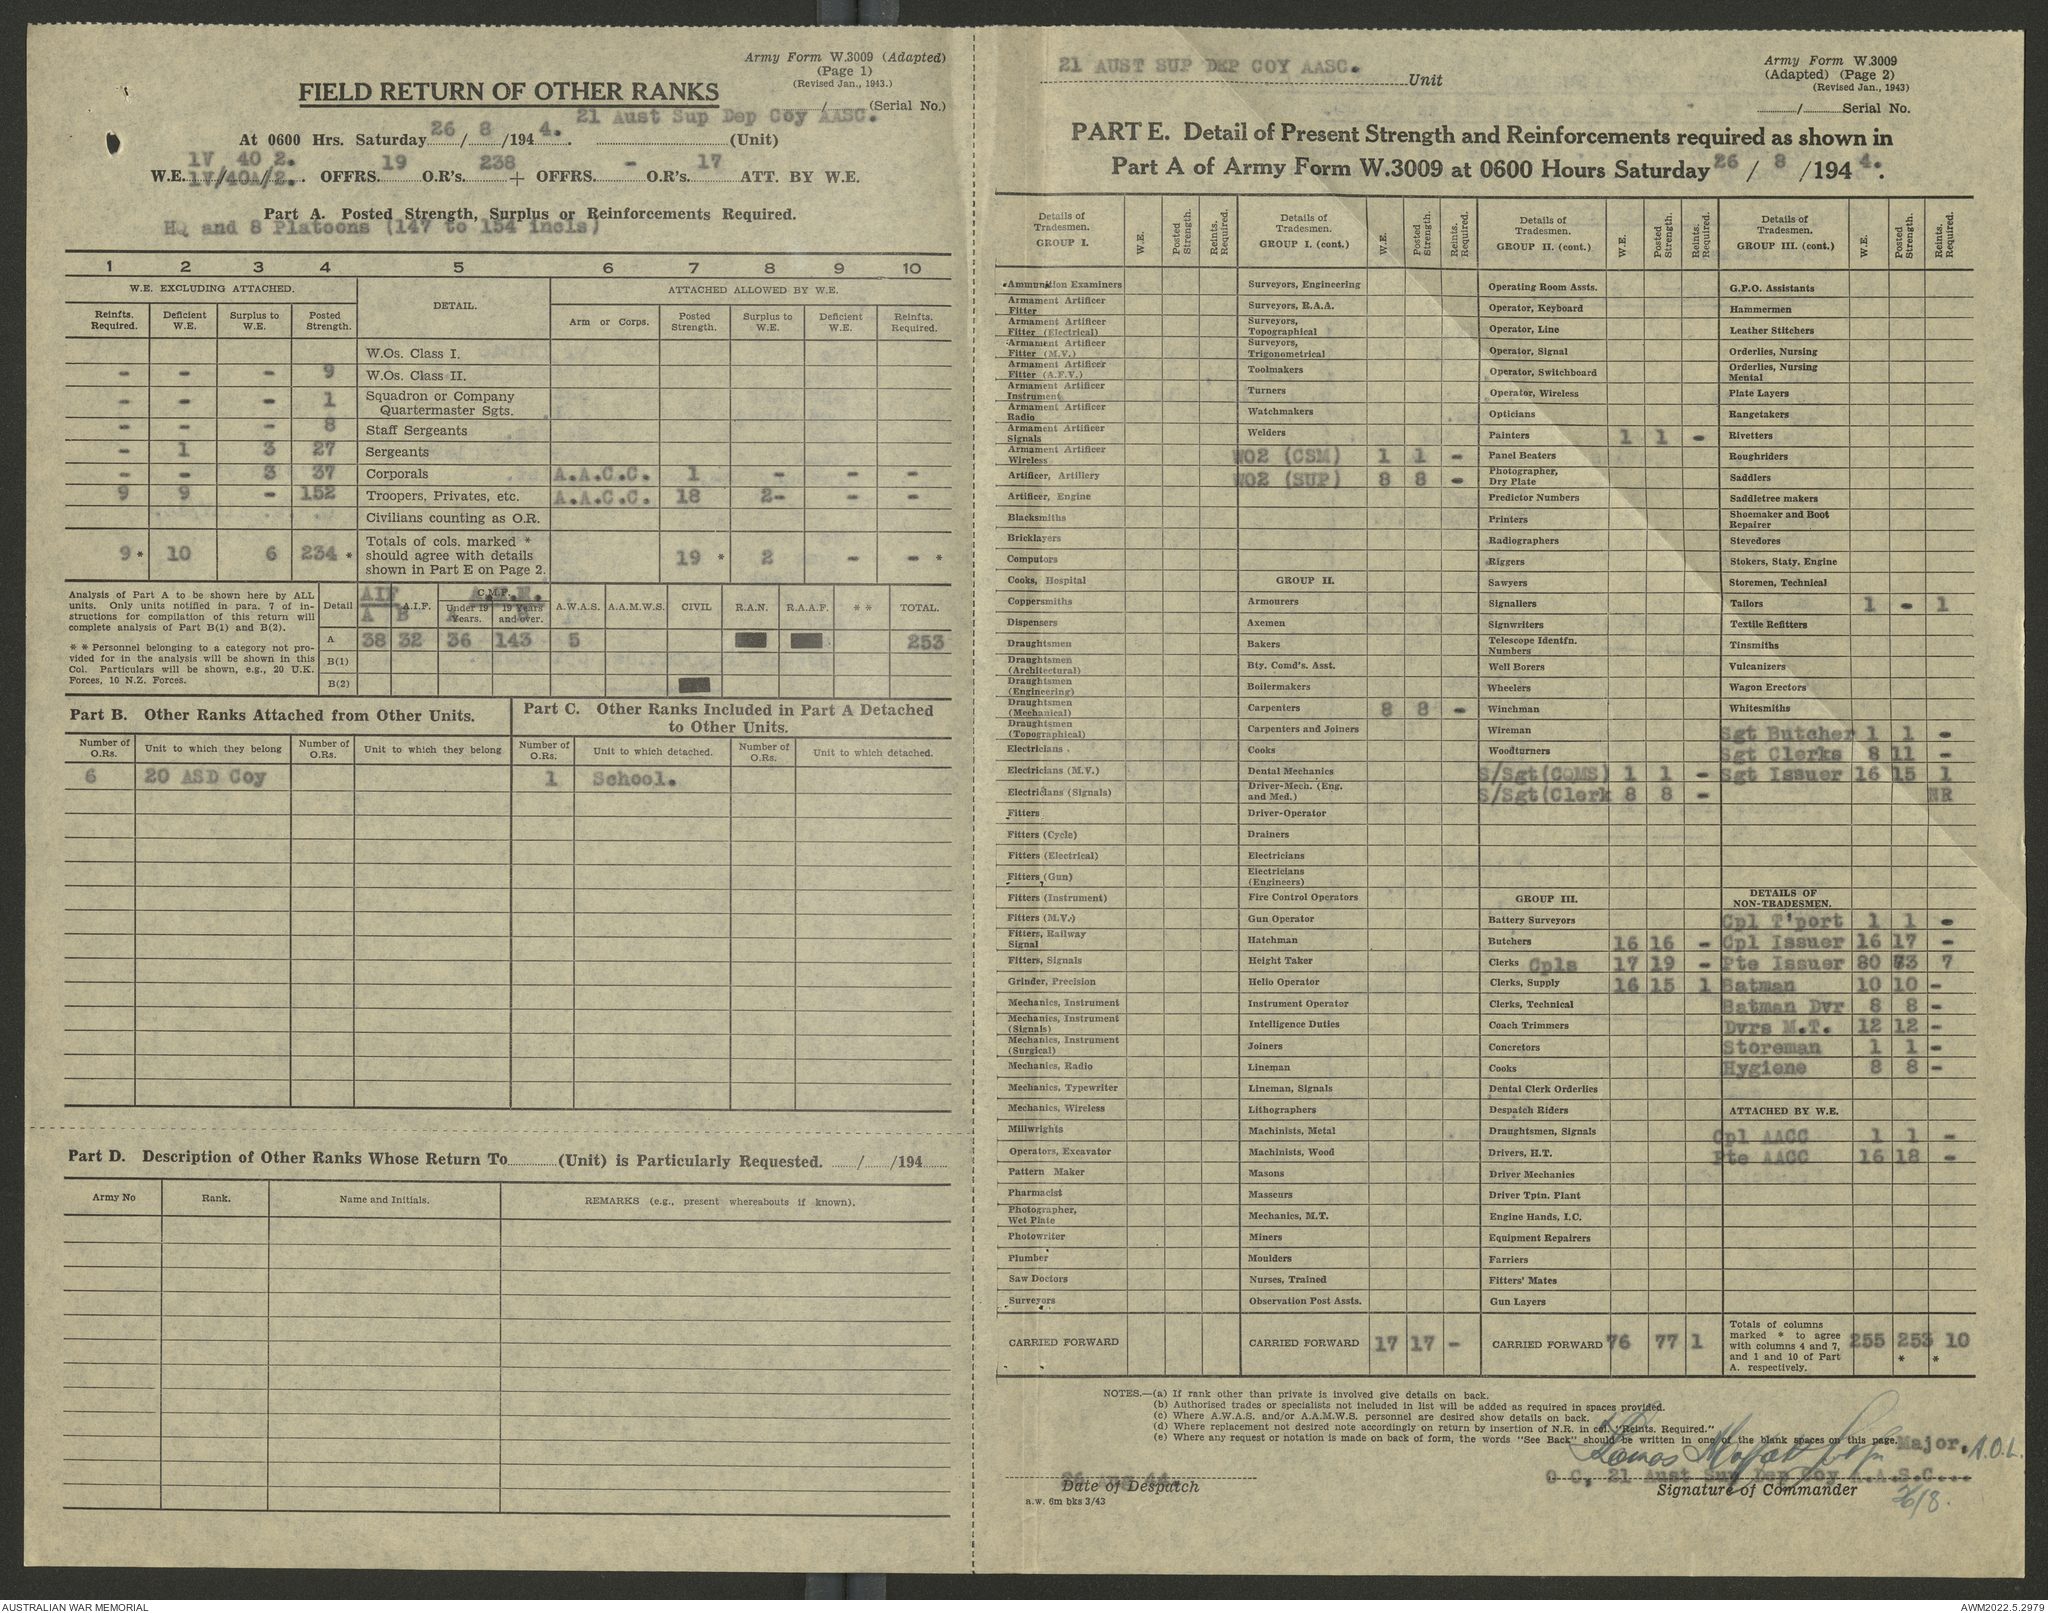 Army Form W.3009 (Adapted)
(Page 1)
(Revised Jan., 1943.)
FIELD RETURN OF OTHER RANKS
/ (Serial No.)
At 0600 Hrs. Saturday 26 / 8 /194 4. 21 Aust Sup Dep Coy AASC. (Unit)
1V 40 2.
W.E. 1V/40A/2. OFFRS. 19 O.R's. 238 + OFFRS. - O.R's. 17 ATT. BY W.E.
Part A. Posted Strength, Surplus or Reinforcements Required.
HQ and 8 Platoons (147 to 154 incls)
1 2 3 4 5 6 7 8 9 10
W.E. EXCLUDING ATTACHED. DETAIL. ATTACHED ALLOWED BY W.E.
Reinfts. Required. Deficient W.E. Surplus to W.E. Posted Strength. Arm or Corps. Posted Strength. Surplus to W.E. Deficient W.E. Reinfts. Required.
W.Os. Class I.
- - - 9 W.Os. Class II.
- - - 1 Squadron or Company Quartermaster Sgts.
- - - 8 Staff Sergeants
- 1 3 27 Sergeants
- - 3 37 Corporals A.A.C.C. 1 - - -
9 9 - 152 Troopers, Privates, etc. A.A.C.C. 18 2- - -
Civilians counting as O.R.
9 * 10 6 234 * Totals of cols. marked * should agree with details shown in Part E on Page 2. 19 * 2 - - *
Analysis of Part A to be shown here by ALL
units. Only units notified in para. 7 of in-
structions for compilation of this return will
complete analysis of Part B(1) and B(2).
* * Personnel belonging to a category not pro-
vided for in the analysis will be shown in this
Col. Particulars will be shown, e.g., 20 U.K.
Forces, 10 N.Z. Forces.
Detail AIF A B A.I.F. C.M.F. Under 19 Years. 19 Years and over. A.W.A.S. A.A.M.W.S. CIVIL R.A.N. R.A.A.F. * * TOTAL.
A 38 32 36 143 5 253
B(1)
B(2)
Part B. Other Ranks Attached from Other Units.
Part C. Other Ranks Included in Part A Detached
to Other Units.
Number of O.Rs. Unit to which they belong Number of O.Rs. Unit to which they belong Number of O.Rs. Unit to which detached. Number of O.Rs. Unit to which detached.
6 20 ASD Coy 1 School.
Part D. Description of Other Ranks Whose Return To (Unit) is Particularly Requested. / /194
Army No Rank. Name and Initials. REMARKS (e.g., present whereabouts if known).
21 AUST SUP DEP COY AASC. Unit
Army Form W.3009
(Adapted) (Page 2)
(Revised Jan., 1943)
/ Serial No.
PART E. Detail of Present Strength and Reinforcements required as shown in
Part A of Army Form W.3009 at 0600 Hours Saturday 26 / 8 /194 4.
Details of Tradesmen. GROUP I. W.E. Posted Strength. Reints. Required.
Ammunition Examiners
Armament Artificer Fitter
Armament Artificer Fitter (Electrical)
Armament Artificer Fitter (M.V.)
Armament Artificer Fitter (A.F.V.)
Armament Artificer Instrument
Armament Artificer Radio
Armament Artificer Signals
Armament Artificer Wireless
Artificer, Artillery
Artificer, Engine
Blacksmiths
Bricklayers
Computors
Cooks, Hospital
Coppersmiths
Dispensers
Draughtsmen
Draughtsmen (Architectural)
Draughtsmen (Engineering)
Draughtsmen (Mechanical)
Draughtsmen (Topographical)
Electricians
Electricians (M.V.)
Electricians (Signals)
Fitters
Fitters (Cycle)
Fitters (Electrical)
Fitters (Gun)
Fitters (Instrument)
Fitters (M.V.)
Fitters, Railway Signal
Fitters, Signals
Grinder, Precision
Mechanics, Instrument
Mechanics, Instrument (Signals)
Mechanics, Instrument (Surgical)
Mechanics, Radio
Mechanics, Typewriter
Mechanics, Wireless
Millwrights
Operators, Excavator
Pattern Maker
Pharmacist
Photographer, Wet Plate
Photowriter
Plumber
Saw Doctors
Surveyors
CARRIED FORWARD
Details of Tradesmen. GROUP I. (cont.) W.E. Posted Strength. Reints. Required.
Surveyors, Engineering
Surveyors, R.A.A.
Surveyors, Topographical
Surveyors, Trigonometrical
Toolmakers
Turners
Watchmakers
Welders
WO2 (CSM) 1 1 -
WO2 (SUP) 8 8 -
GROUP II.
Armourers
Axemen
Bakers
Bty. Comd's. Asst.
Boilermakers
Carpenters 8 8 -
Carpenters and Joiners
Cooks
Dental Mechanics
Driver-Mech. (Eng. and Med.)
Driver-Operator
Drainers
Electricians
Electricians (Engineers)
Fire Control Operators
Gun Operator
Hatchman
Height Taker
Helio Operator
Instrument Operator
Intelligence Duties
Joiners
Lineman
Lineman, Signals
Lithographers
Machinists, Metal
Machinists, Wood
Masons
Masseurs
Mechanics, M.T.
Miners
Moulders
Nurses, Trained
Observation Post Assts.
CARRIED FORWARD 17 17 -
Details of Tradesmen. GROUP II. (cont.) W.E. Posted Strength. Reints. Required.
Operating Room Assts.
Operator, Keyboard
Operator, Line
Operator, Signal
Operator, Switchboard
Operator, Wireless
Opticians
Painters 1 1 -
Panel Beaters
Photographer, Dry Plate
Predictor Numbers
Printers
Radiographers
Riggers
Sawyers
Signallers
Signwriters
Telescope Identfn. Numbers
Well Borers
Wheelers
Winchman
Wireman
Woodturners
S/Sgt(CQMS) 1 1 -
S/Sgt(Clerk 8 8 -
GROUP III.
Battery Surveyors
Butchers 16 16 -
Clerks Cpls 17 19 -
Clerks, Supply 16 15 1
Clerks, Technical
Coach Trimmers
Concretors
Cooks
Dental Clerk Orderlies
Despatch Riders
Draughtsmen, Signals
Drivers, H.T.
Driver Mechanics
Driver Tptn. Plant
Engine Hands, I.C.
Equipment Repairers
Farriers
Fitters' Mates
Gun Layers
CARRIED FORWARD 76 77 1
Details of Tradesmen. GROUP III. (cont.) W.E. Posted Strength. Reints. Required.
G.P.O. Assistants
Hammermen
Leather Stitchers
Orderlies, Nursing
Orderlies, Nursing Mental
Plate Layers
Rangetakers
Rivetters
Roughriders
Saddlers
Saddletree makers
Shoemaker and Boot Repairer
Stevedores
Stokers, Staty. Engine
Storemen, Technical
Tailors 1 - 1
Textile Refitters
Tinsmiths
Vulcanizers
Wagon Erectors
Whitesmiths
Sgt Butcher 1 1 -
Sgt Clerks 8 11 -
Sgt Issuer 16 15 1
NR
DETAILS OF NON-TRADESMEN.
Cpl T'port 1 1 -
Cpl Issuer 16 17 -
Pte Issuer 80 73 7
Batman 10 10 -
Batman Dvr 8 8 -
Dvrs M.T. 12 12 -
Storeman 1 1 -
Hygiene 8 8 -
ATTACHED BY W.E.
Cpl AACC 1 1 -
Pte AACC 16 18 -
Totals of columns marked * to agree with columns 4 and 7, and 1 and 10 of Part A. respectively. 255 253 * 10 *
NOTES.—(a) If rank other than private is involved give details on back.
(b) Authorised trades or specialists not included in list will be added as required in spaces provided.
(c) Where A.W.A.S. and/or A.A.M.W.S. personnel are desired show details on back.
(d) Where replacement not desired note accordingly on return by insertion of N.R. in col. "Reints. Required."
(e) Where any request or notation is made on back of form, the words "See Back" should be written in one of the blank spaces on this page.
Major, A.O.L.
26 AUG 44. O C, 21 Aust Sup Dep Coy A.A.S.C...
Date of Despatch Signature of Commander
26/8.
a.w. 6m bks 3/43
AUSTRALIAN WAR MEMORIAL AWM2022.5.2979